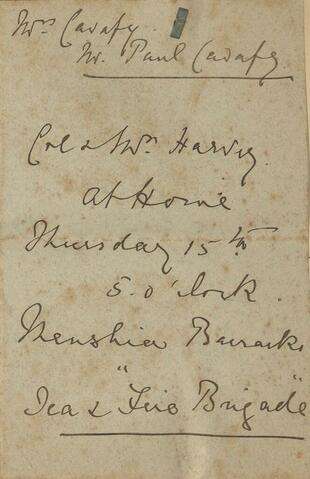 Mrs Cavafy
Mr. Paul Cavafy.
Col & Mrs Harvey.
At Home
Thursday 15th
5. O'clock.
Menshia Barracks
Tea & "Fire Brigade"